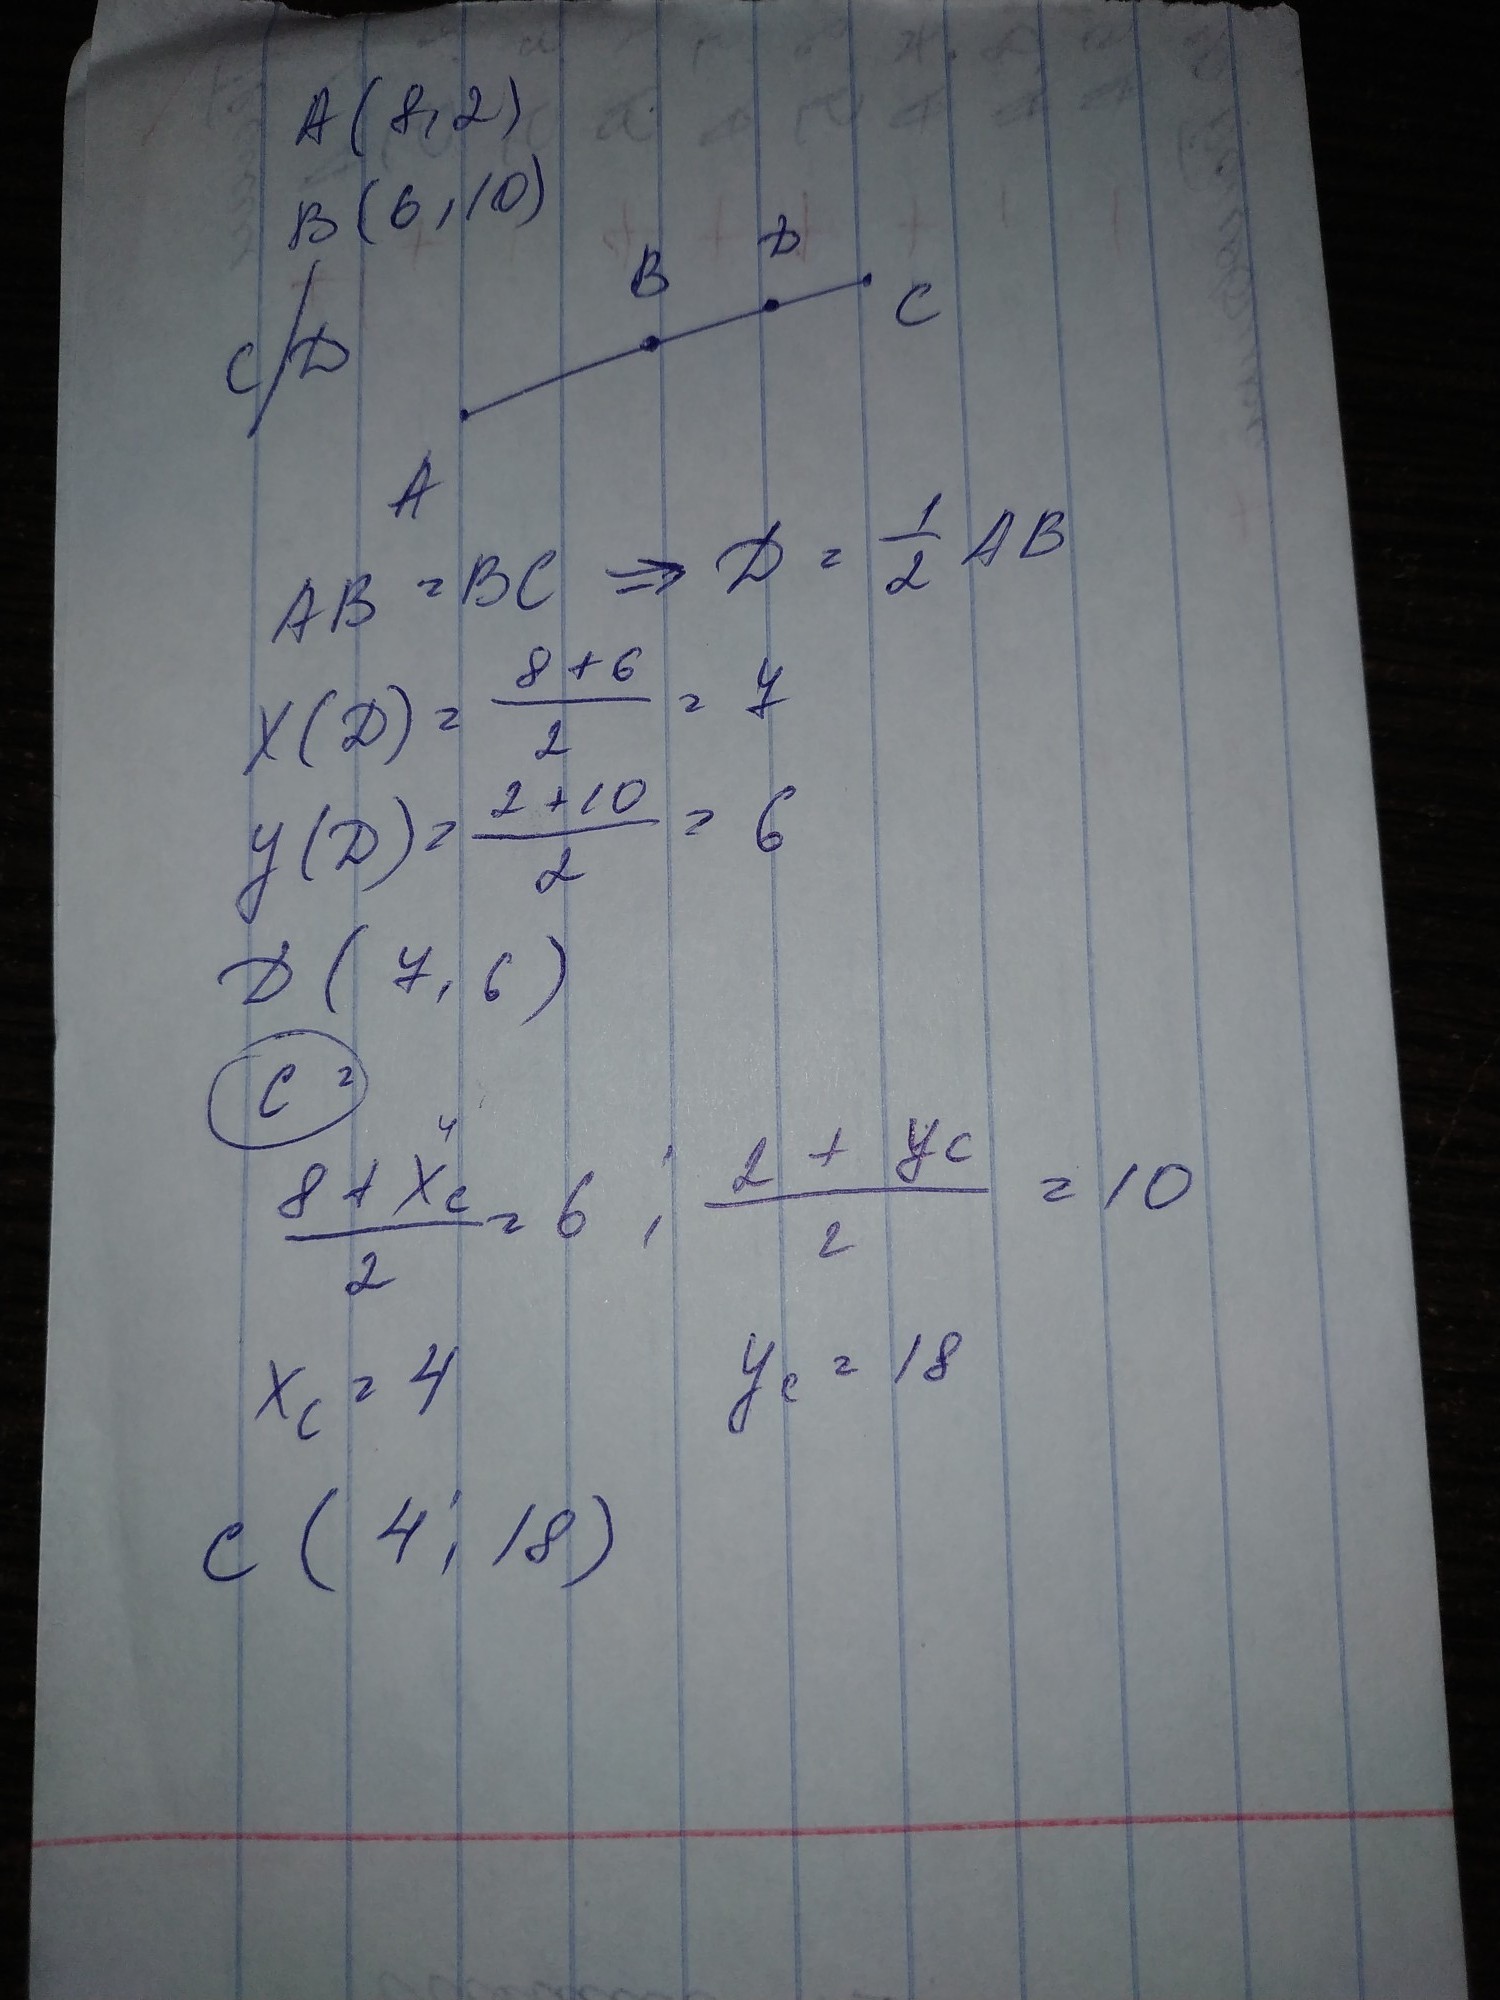 A(8,2)
B(6,10)
C/D
B D C
A
AB = BC ⇒ D = 1/2 AB
X(D) = (8+6)/2 = 7
y(D) = (2+10)/2 = 6
D(7,6)
C =
(8+Xc)/2 = 6 ; (2+yc)/2 = 10
Xc = 4 yc = 18
C(4;18)